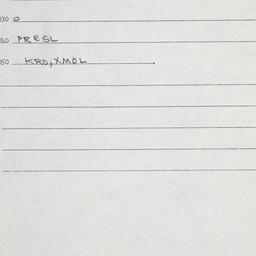 030 0
060 PRESL
050 KRD,XMOL